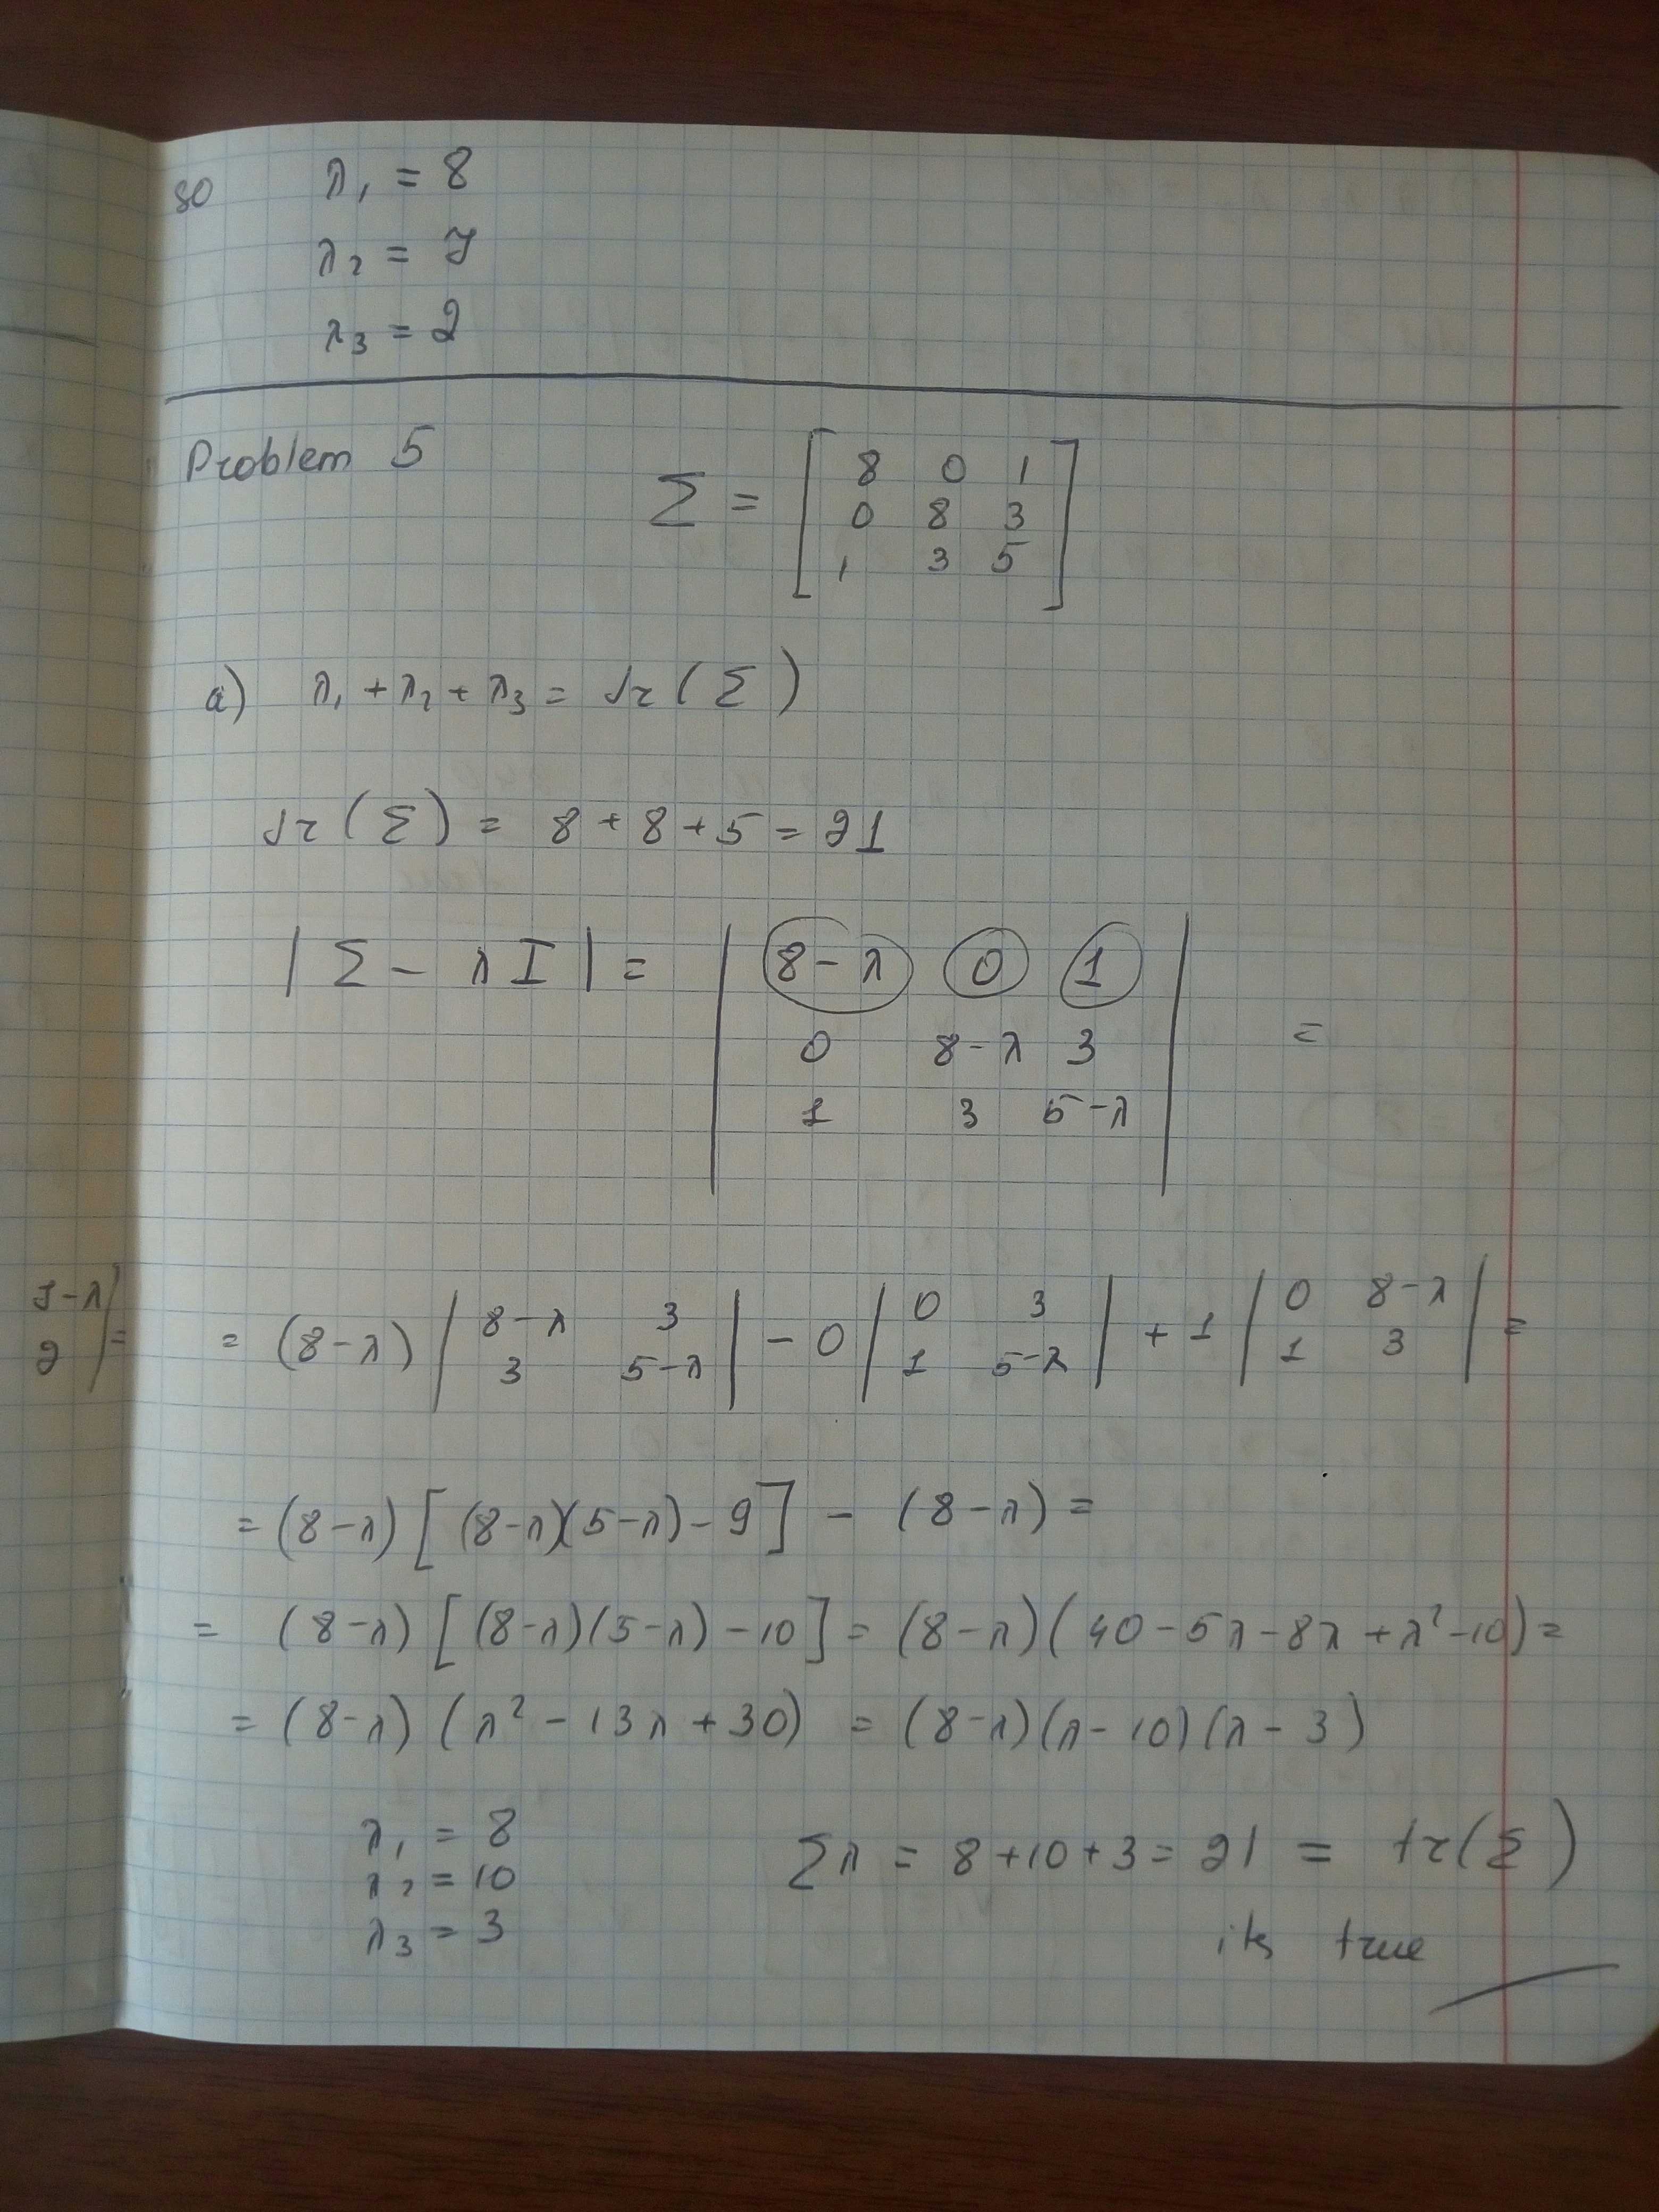 so λ₁ = 8
λ₂ = 7
λ₃ = 2
Problem 5
Σ = [ 8 0 1
0 8 3
1 3 5 ]
a) λ₁ + λ₂ + λ₃ = tr(Σ)
tr(Σ) = 8 + 8 + 5 = 21
|Σ - λI| = | 8-λ 0 1
0 8-λ 3 =
1 3 5-λ |
= (8-λ) | 8-λ 3 | - 0 | 0 3 | + 1 | 0 8-λ | =
3 5-λ 1 5-λ 1 3
= (8-λ) [(8-λ)(5-λ) - 9] - (8-λ) =
= (8-λ) [(8-λ)(5-λ) - 10] = (8-λ)(40 - 5λ - 8λ + λ² - 10) =
= (8-λ) (λ² - 13λ + 30) = (8-λ)(λ-10)(λ-3)
λ₁ = 8
λ₂ = 10
λ₃ = 3
Σλ = 8 + 10 + 3 = 21 = tr(Σ)
its true